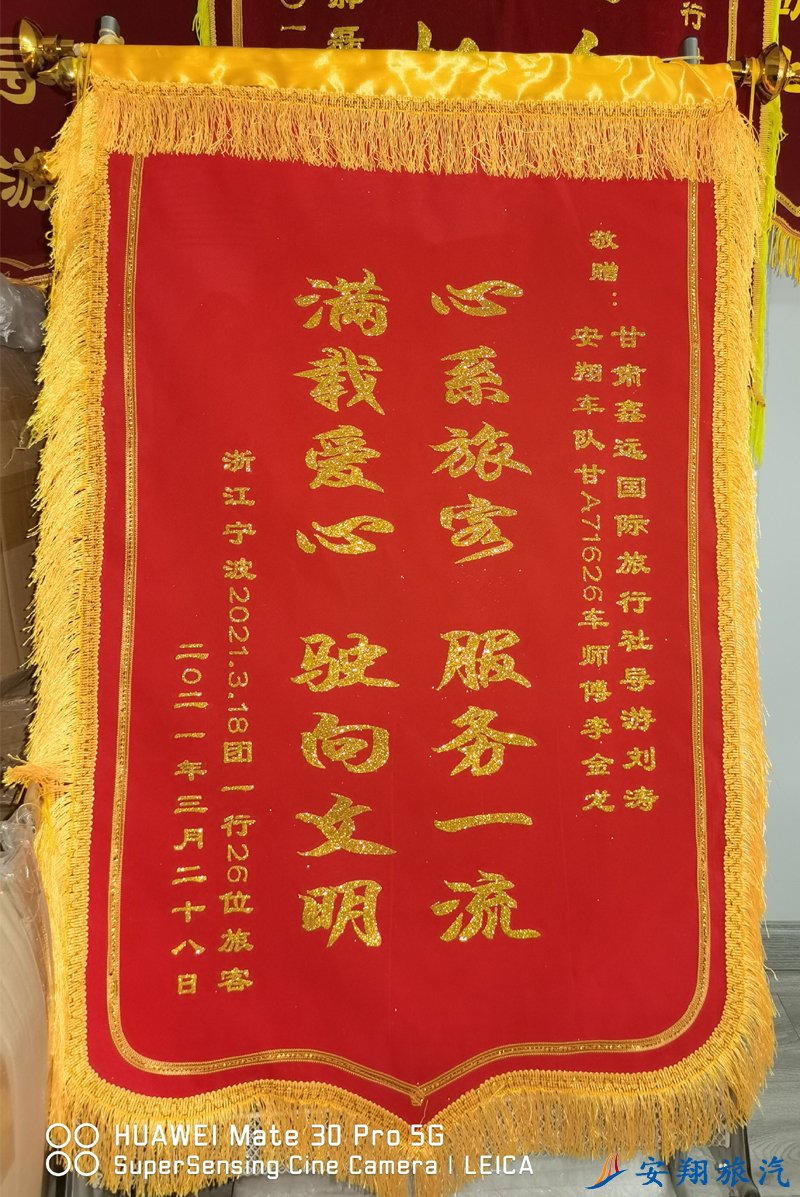 敬赠：甘肃鑫远国际旅行社导游刘涛
安翔车队甘A71626车师傅李金龙
心系旅客 服务一流
满载爱心 驶向文明
浙江宁波2021.3.18团一行26位旅客
二〇二一年三月二十八日
游
行
HUAWEI Mate 30 Pro 5G
SuperSensing Cine Camera | LEICA
安翔旅汽